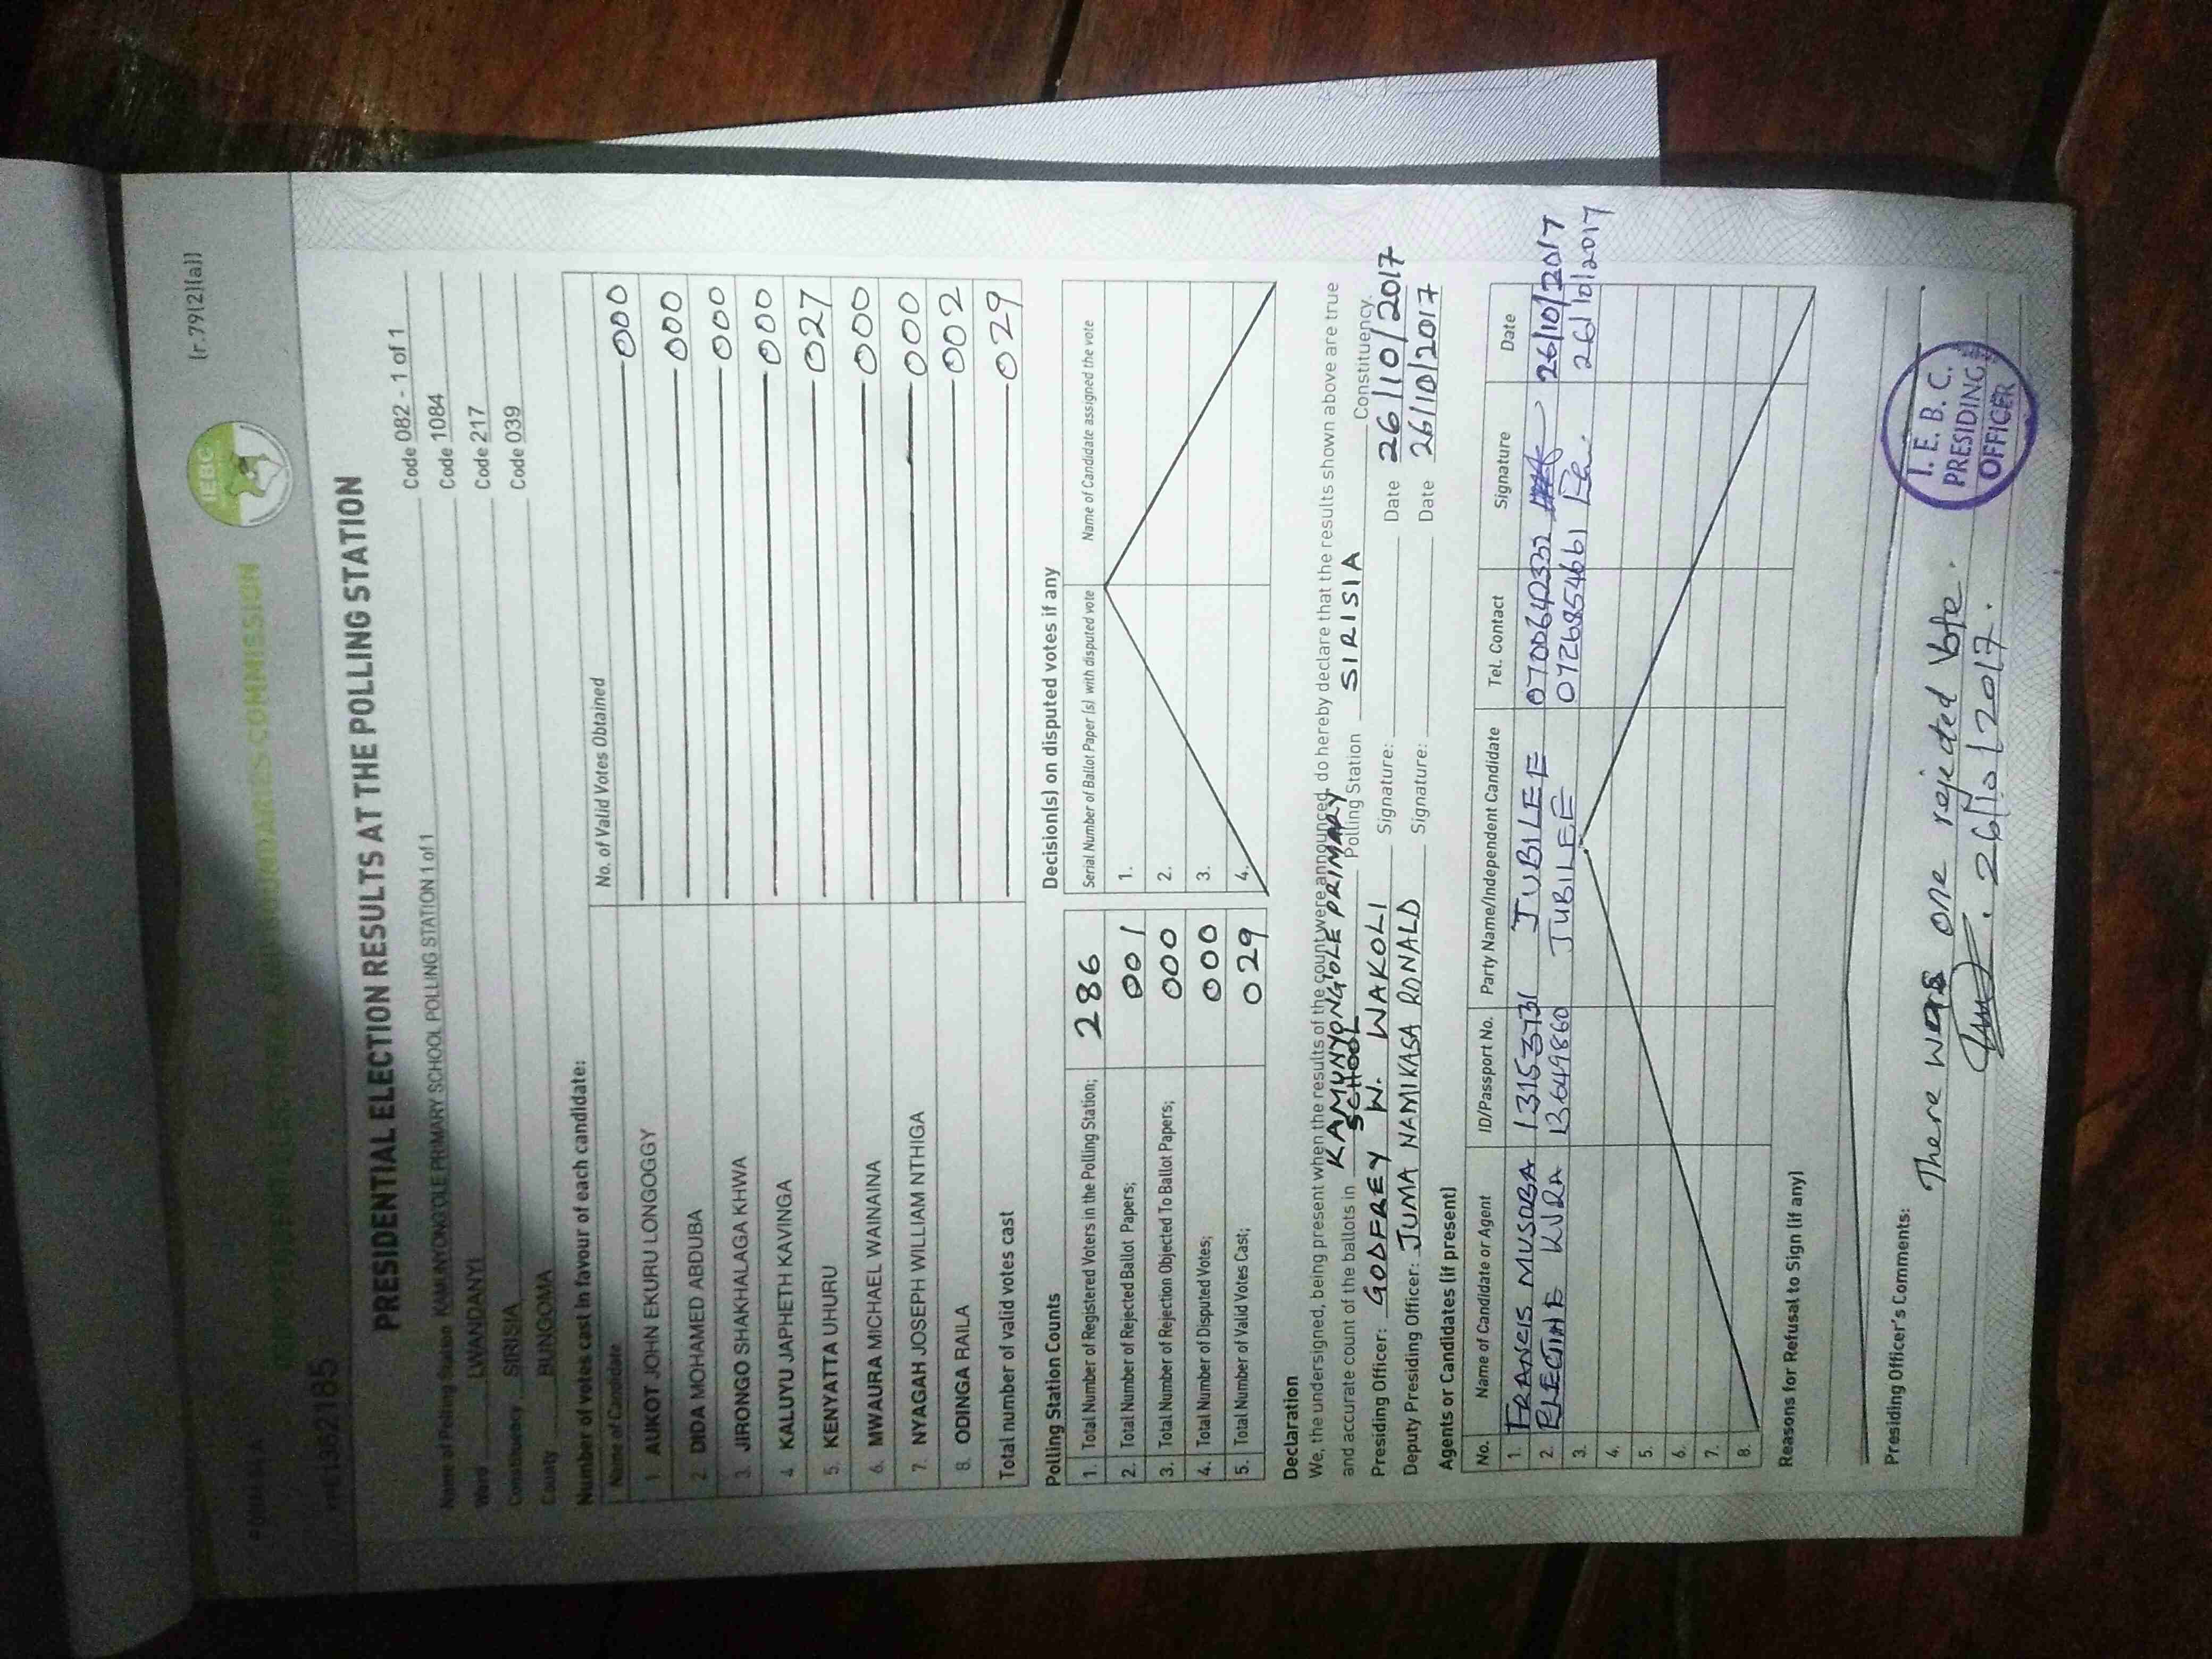 (r.79(2)(a))
IEBC
PRESIDENTIAL ELECTION RESULTS AT THE POLLING STATION
Name of Polling Station KAMUNYONGOLE PRIMARY SCHOOL POLLING STATION 1 of 1 Code 082 - 1 of 1
Ward LWANDANYI Code 1084
Constituency SIRISIA Code 217
County BUNGOMA Code 039
Number of votes cast in favour of each candidate:
Name of Candidate No. of Valid Votes Obtained
1. AUKOT JOHN EKURU LONGOGGY 000
2. DIDA MOHAMED ABDUBA 000
3. JIRONGO SHAKHALAGA KHWA 000
4. KALUYU JAPHETH KAVINGA 000
5. KENYATTA UHURU 027
6. MWAURA MICHAEL WAINAINA 000
7. NYAGAH JOSEPH WILLIAM NTHIGA 000
8. ODINGA RAILA 002
Total number of valid votes cast 029
Polling Station Counts
1. Total Number of Registered Voters in the Polling Station; 286
2. Total Number of Rejected Ballot Papers; 001
3. Total Number of Rejection Objected To Ballot Papers; 000
4. Total Number of Disputed Votes; 000
5. Total Number of Valid Votes Cast; 029
Decision(s) on disputed votes if any
Serial Number of Ballot Paper (s) with disputed vote Name of Candidate assigned the vote
1.
2.
3.
4.
Declaration
We, the undersigned, being present when the results of the count were announced, do hereby declare that the results shown above are true
and accurate count of the ballots in KAMUNYONGOLE PRIMARY SCHOOL Polling Station SIRISIA Constituency.
Presiding Officer: GODFREY W. WAKOLI Signature: Date 26/10/2017
Deputy Presiding Officer: JUMA NAMIKASA RONALD Signature: Date 26/10/2017
Agents or Candidates (if present)
No. Name of Candidate or Agent ID/Passport No. Party Name/Independent Candidate Tel. Contact Signature Date
1. FRANCIS MUSOBA JUBILEE 26/10/2017
2. 13649860 JUBILEE 0726854661 26/10/2017
3.
4.
5.
6.
7.
8.
Reasons for Refusal to Sign (if any)
Presiding Officer's Comments:
There was one rejected Vote.
26/10/2017.
I. E. B. C.
PRESIDING
OFFICER